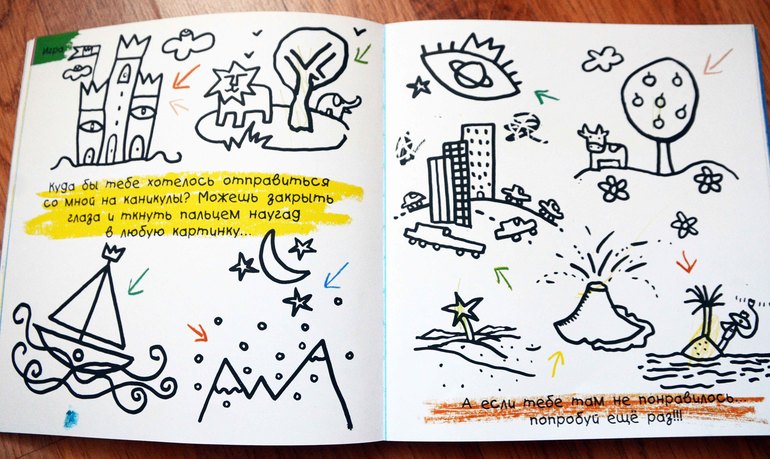 Игра
Куда бы тебе хотелось отправиться
со мной на каникулы? Можешь закрыть
глаза и ткнуть пальцем наугад
в любую картинку...
А если тебе там не понравилось...
попробуй ещё раз!!!